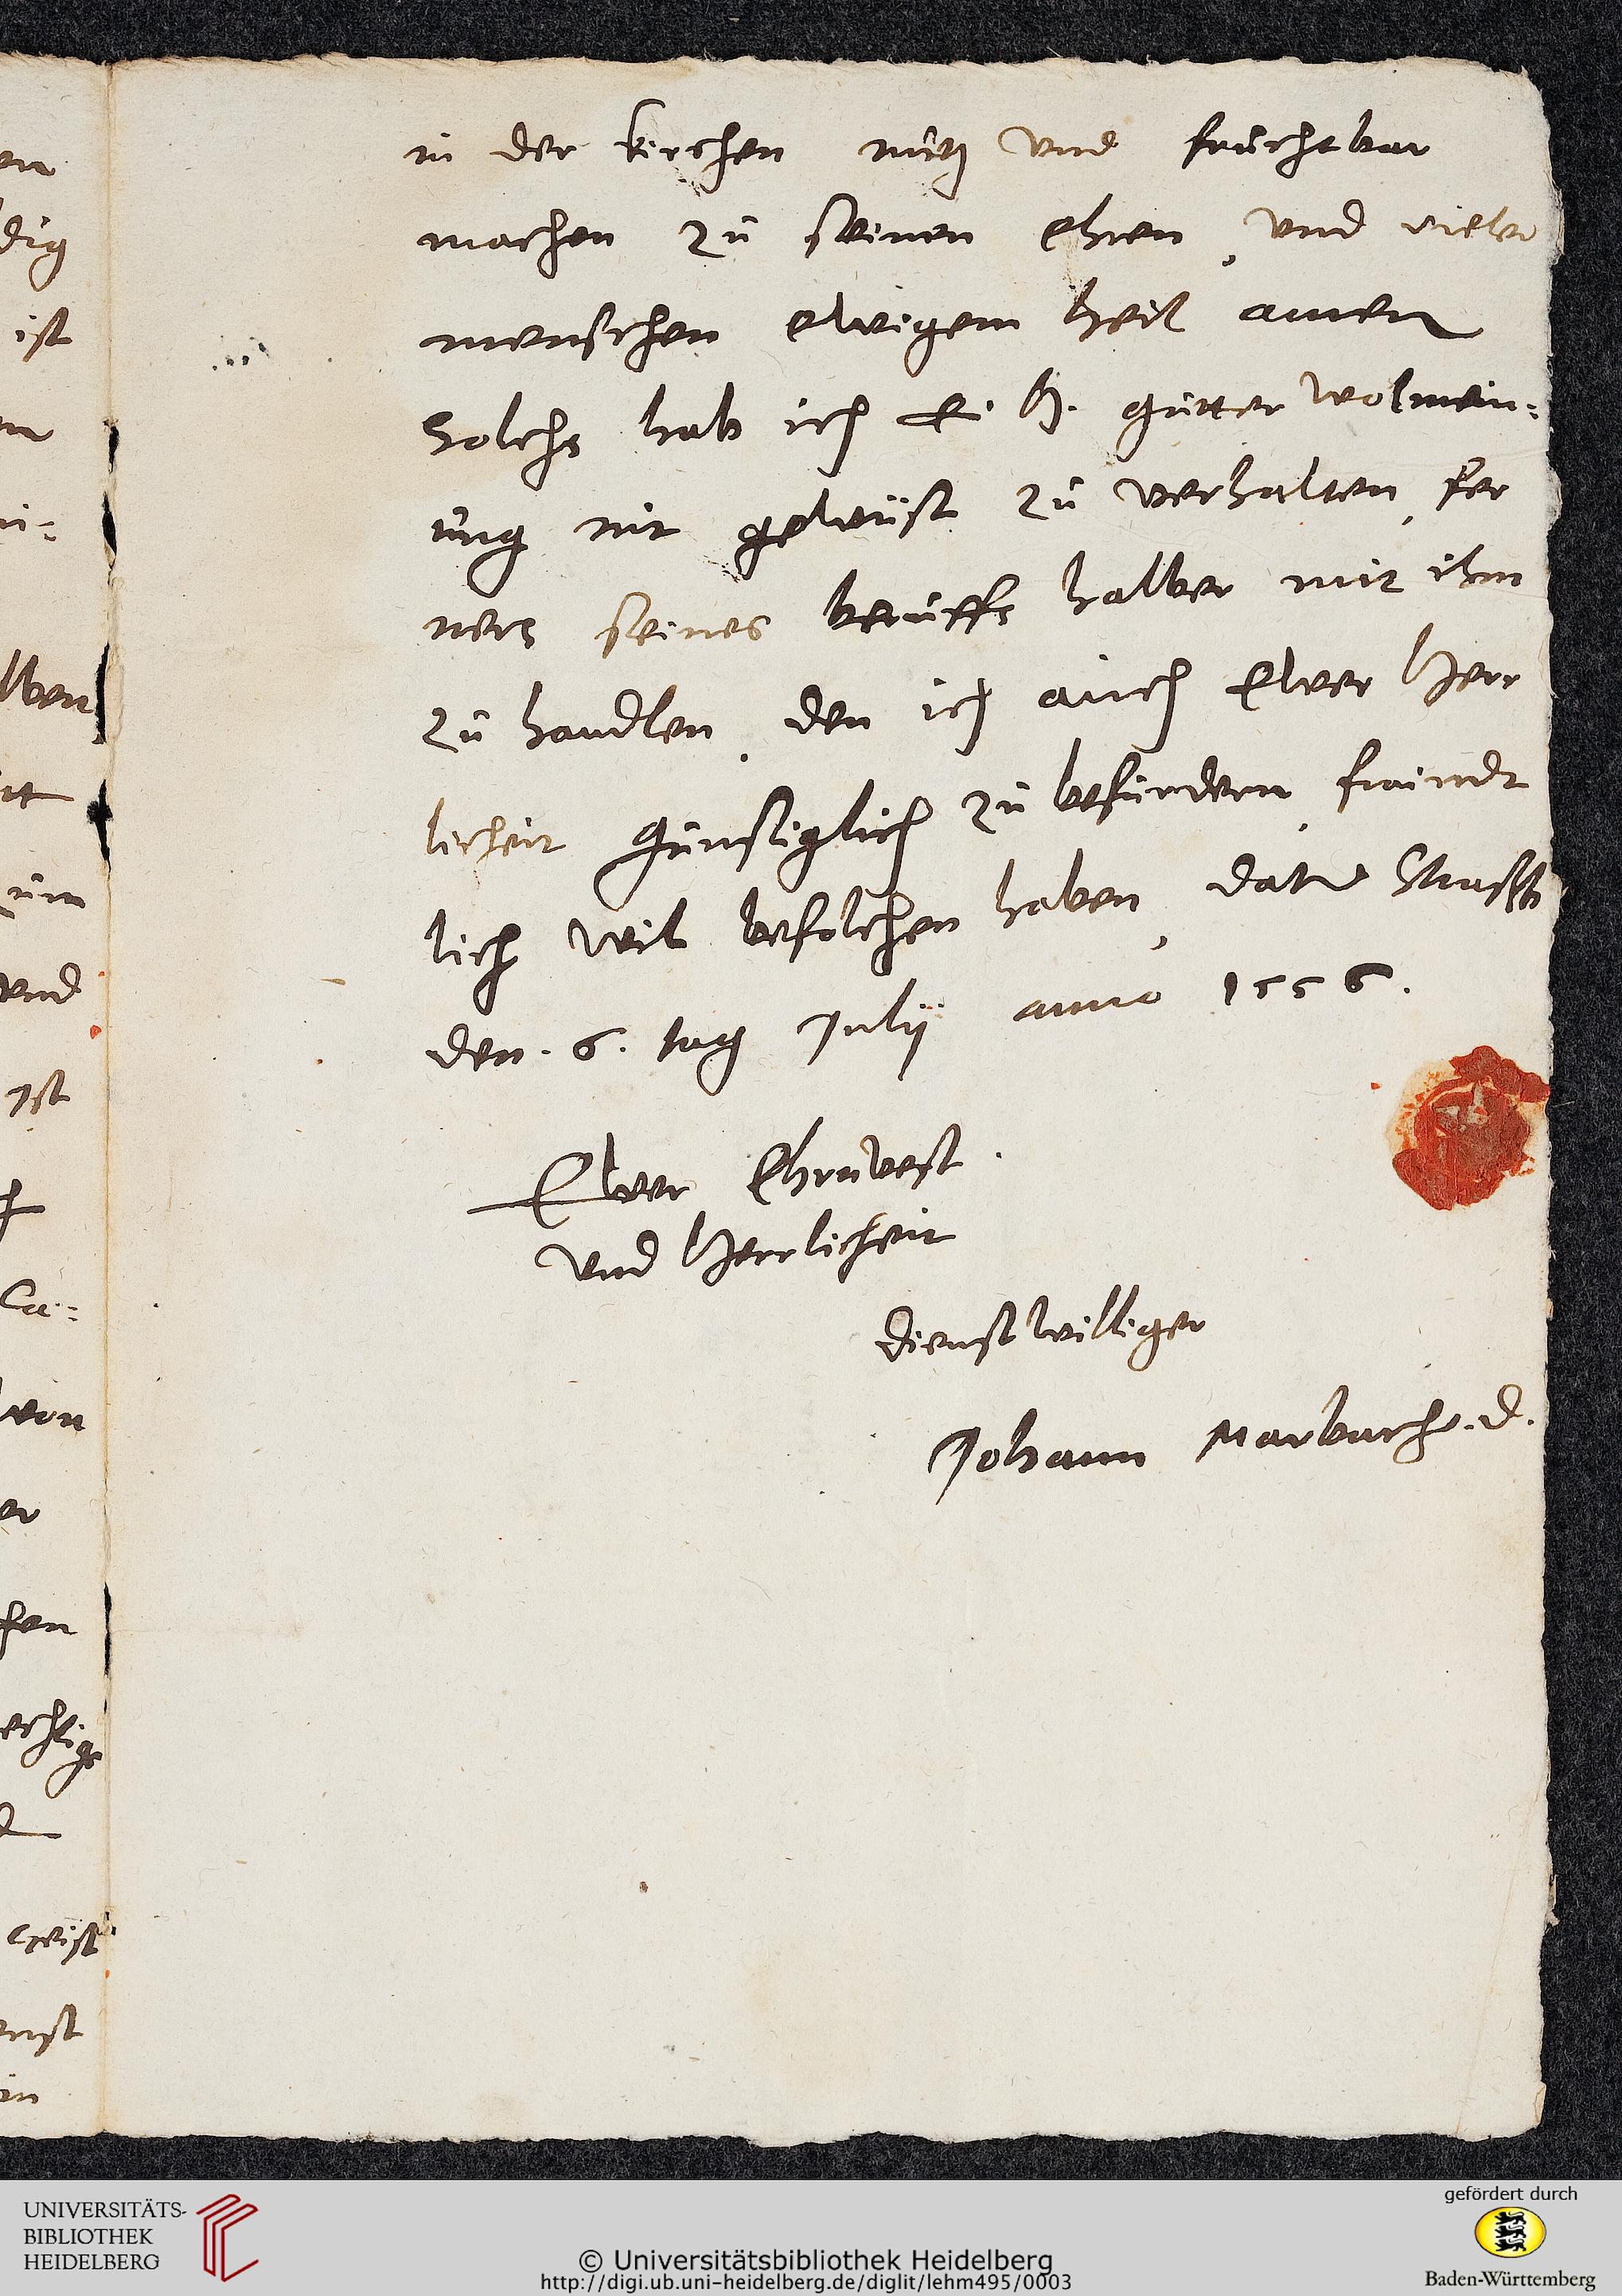 in der kirchen nütz vnd früchtbar
machen zů seinen ehren, vnd vieler
menschen ewigem heil amen
Solchs hab ich E. H. gůtter wolmein=
ůng nit gewüst zů verhalten, fer
ners seines berůffs halber mit ihm
zů handlen, den ich auch Ewer Herr
licheit günstiglich zů befürdern, fraindt
lich wil befolchen haben, dat Strasb
den. 6. tag Julij anno 1556.
Ewer Ehrnvest.
vnd Herrlicheit
dienstwilliger
Johann Marbach. D.
dig
ist
vnd
Jst
von
UNIVERSITÄTS-
BIBLIOTHEK
HEIDELBERG
© Universitätsbibliothek Heidelberg
http://digi.ub.uni-heidelberg.de/diglit/lehm495/0003
gefördert durch
Baden-Württemberg